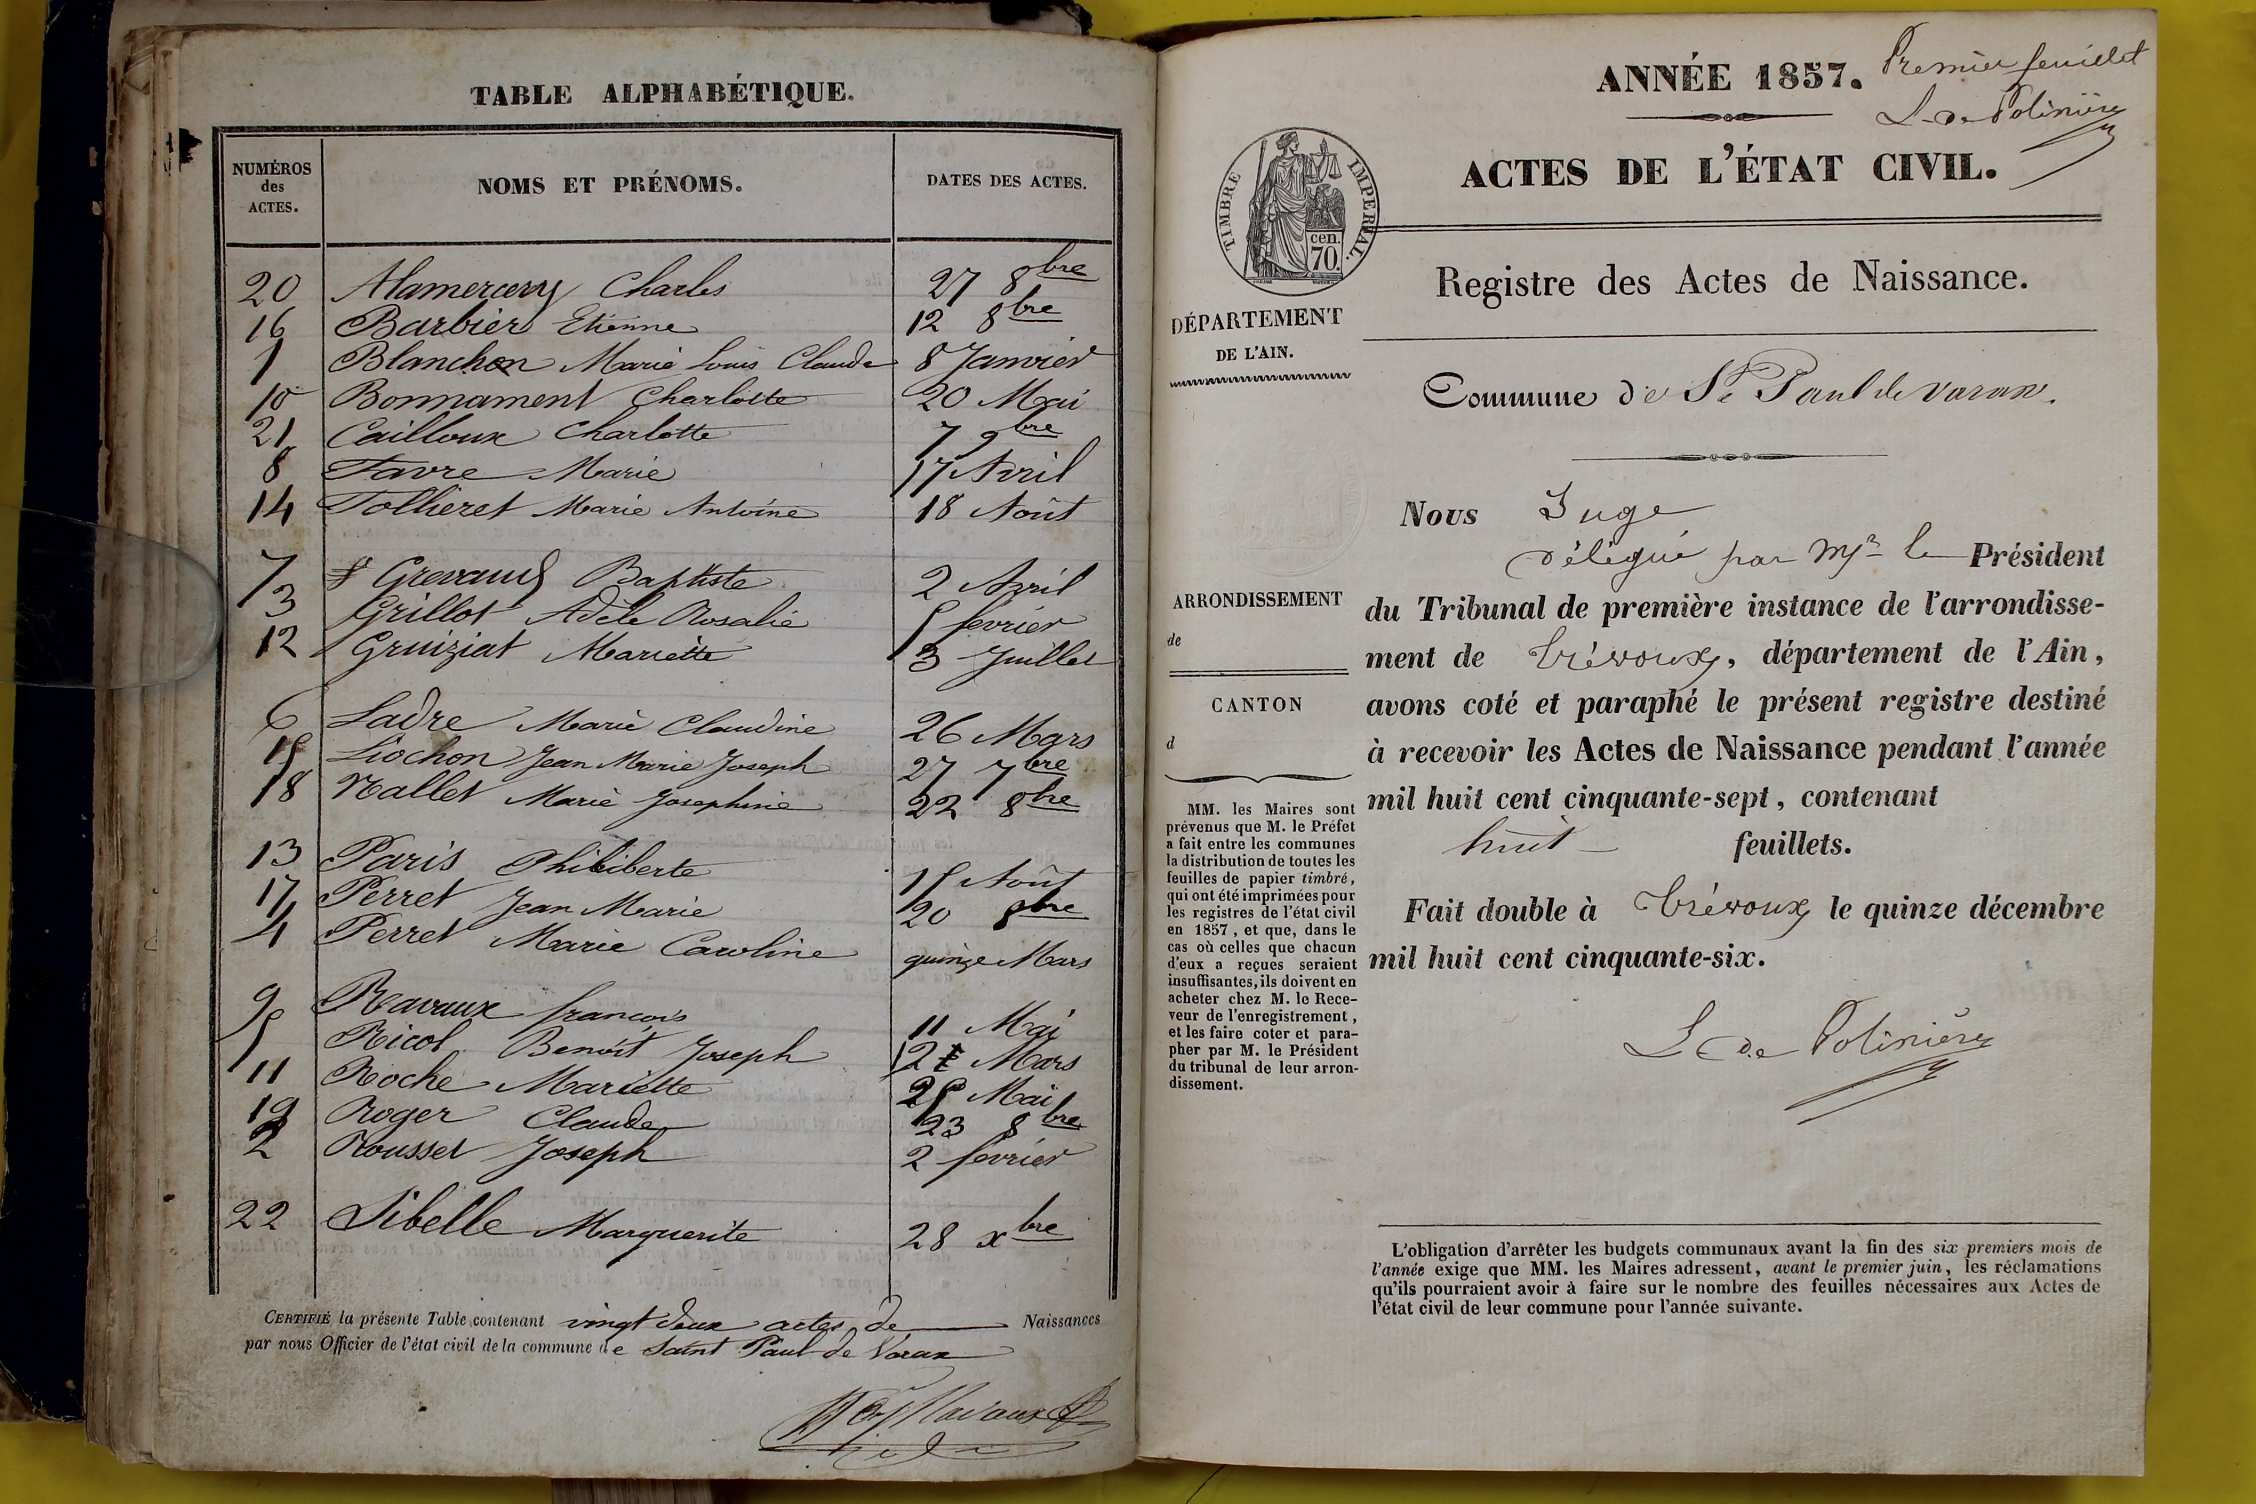 TABLE ALPHABÉTIQUE.
NUMÉROS des ACTES. NOMS ET PRÉNOMS. DATES DES ACTES.
20 Alamercery Charles 27 8bre
16 Barbier Etienne 12 8bre
1 Blanchon Marie Louis Claude 8 Janvier
10 Bonnament Charlotte 20 Mai
21 Cailloux Charlotte 7 9bre
8 Favre Marie 17 Avril
14 Follieret Marie Antoine 18 Août
7 Grevaud Baptiste 2 Avril
3 Grillot Adèle Rosalie 5 février
12 Gruiziat Mariette 3 Juillet
6 Ladre Marie Claudine 26 Mars
15 Liochon Jean Marie Joseph 27 7bre
18 Nallet Marie Josephine 22 8bre
13 Paris Philiberte 15 Août
17 Perret Jean Marie 20 8bre
4 Perret Marie Caroline quinze Mars
9 Ravaux françois 11 Mai
5 Ricol Benoit Joseph 2 Mars
11 Roche Mariette 25 Mai
19 Roger Claude 23 8bre
2 Rousset Joseph 2 février
22 Sibelle Marguerite 28 xbre
CERTIFIÉ la présente Table contenant vingt deux actes de Naissances
par nous Officier de l'état civil de la commune de Saint Paul de Varax
Ravaux
ANNÉE 1857. Premier feuillet
L. de Polinière
ACTES DE L'ÉTAT CIVIL.
TIMBRE IMPERIAL.
cen.
70
Registre des Actes de Naissance.
DÉPARTEMENT
DE L'AIN.
Commune de St Paul de Varax.
Nous Juge
délégué par Mr le Président
du Tribunal de première instance de l'arrondisse-
ment de Trévoux, département de l'Ain,
avons coté et paraphé le présent registre destiné
à recevoir les Actes de Naissance pendant l'année
mil huit cent cinquante-sept, contenant
huit feuillets.
Fait double à Trévoux le quinze décembre
mil huit cent cinquante-six.
L. de Polinière
ARRONDISSEMENT
de
CANTON
d
MM. les Maires sont
prévenus que M. le Préfet
a fait entre les communes
la distribution de toutes les
feuilles de papier timbré,
qui ont été imprimées pour
les registres de l'état civil
en 1857, et que, dans le
cas où celles que chacun
d'eux a reçues seraient
insuffisantes, ils doivent en
acheter chez M. le Rece-
veur de l'enregistrement,
et les faire coter et para-
pher par M. le Président
du tribunal de leur arron-
dissement.
L'obligation d'arrêter les budgets communaux avant la fin des six premiers mois de
l'année exige que MM. les Maires adressent, avant le premier juin, les réclamations
qu'ils pourraient avoir à faire sur le nombre des feuilles nécessaires aux Actes de
l'état civil de leur commune pour l'année suivante.